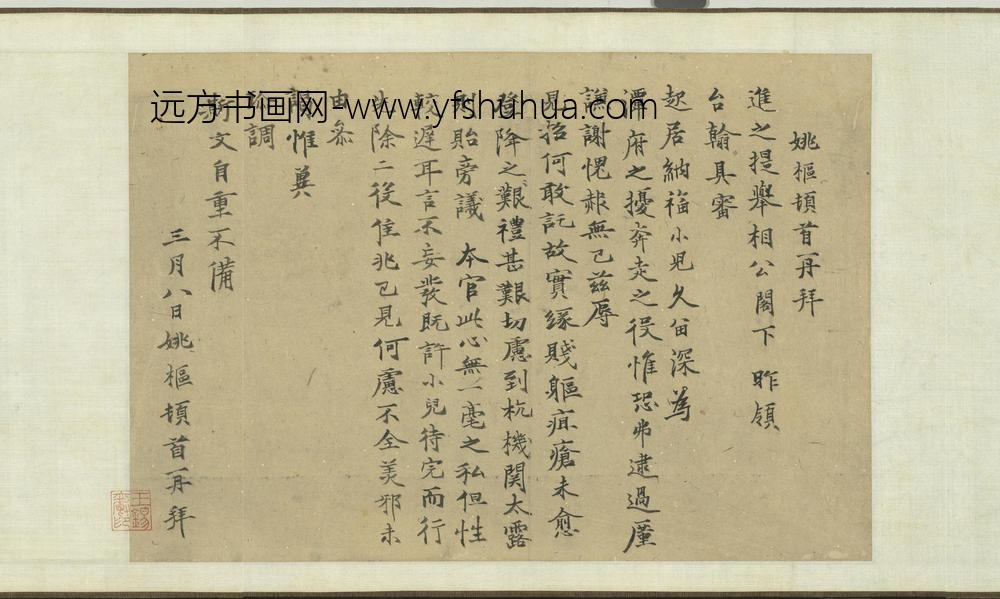 姚樞頓首再拜
進之提舉相公閣下 昨領
台翰具審
起居納福小児久留深為
潭府之擾奔走之役惟恐弗逮過厪
謝愧赧無已兹辱
何敢託故實緣賤軀疽瘡未愈
降之艱禮甚艱切慮到杭機関太露
貽旁議 本官此心無一毫之私但性
較遲耳言不妄發既許小兒待完而行
除二役佳兆已見何慮不全美邪未
由叅
惟冀
調
文自重不備
三月八日姚樞頓首再拜
远方书画网-www.yfshuhua.com